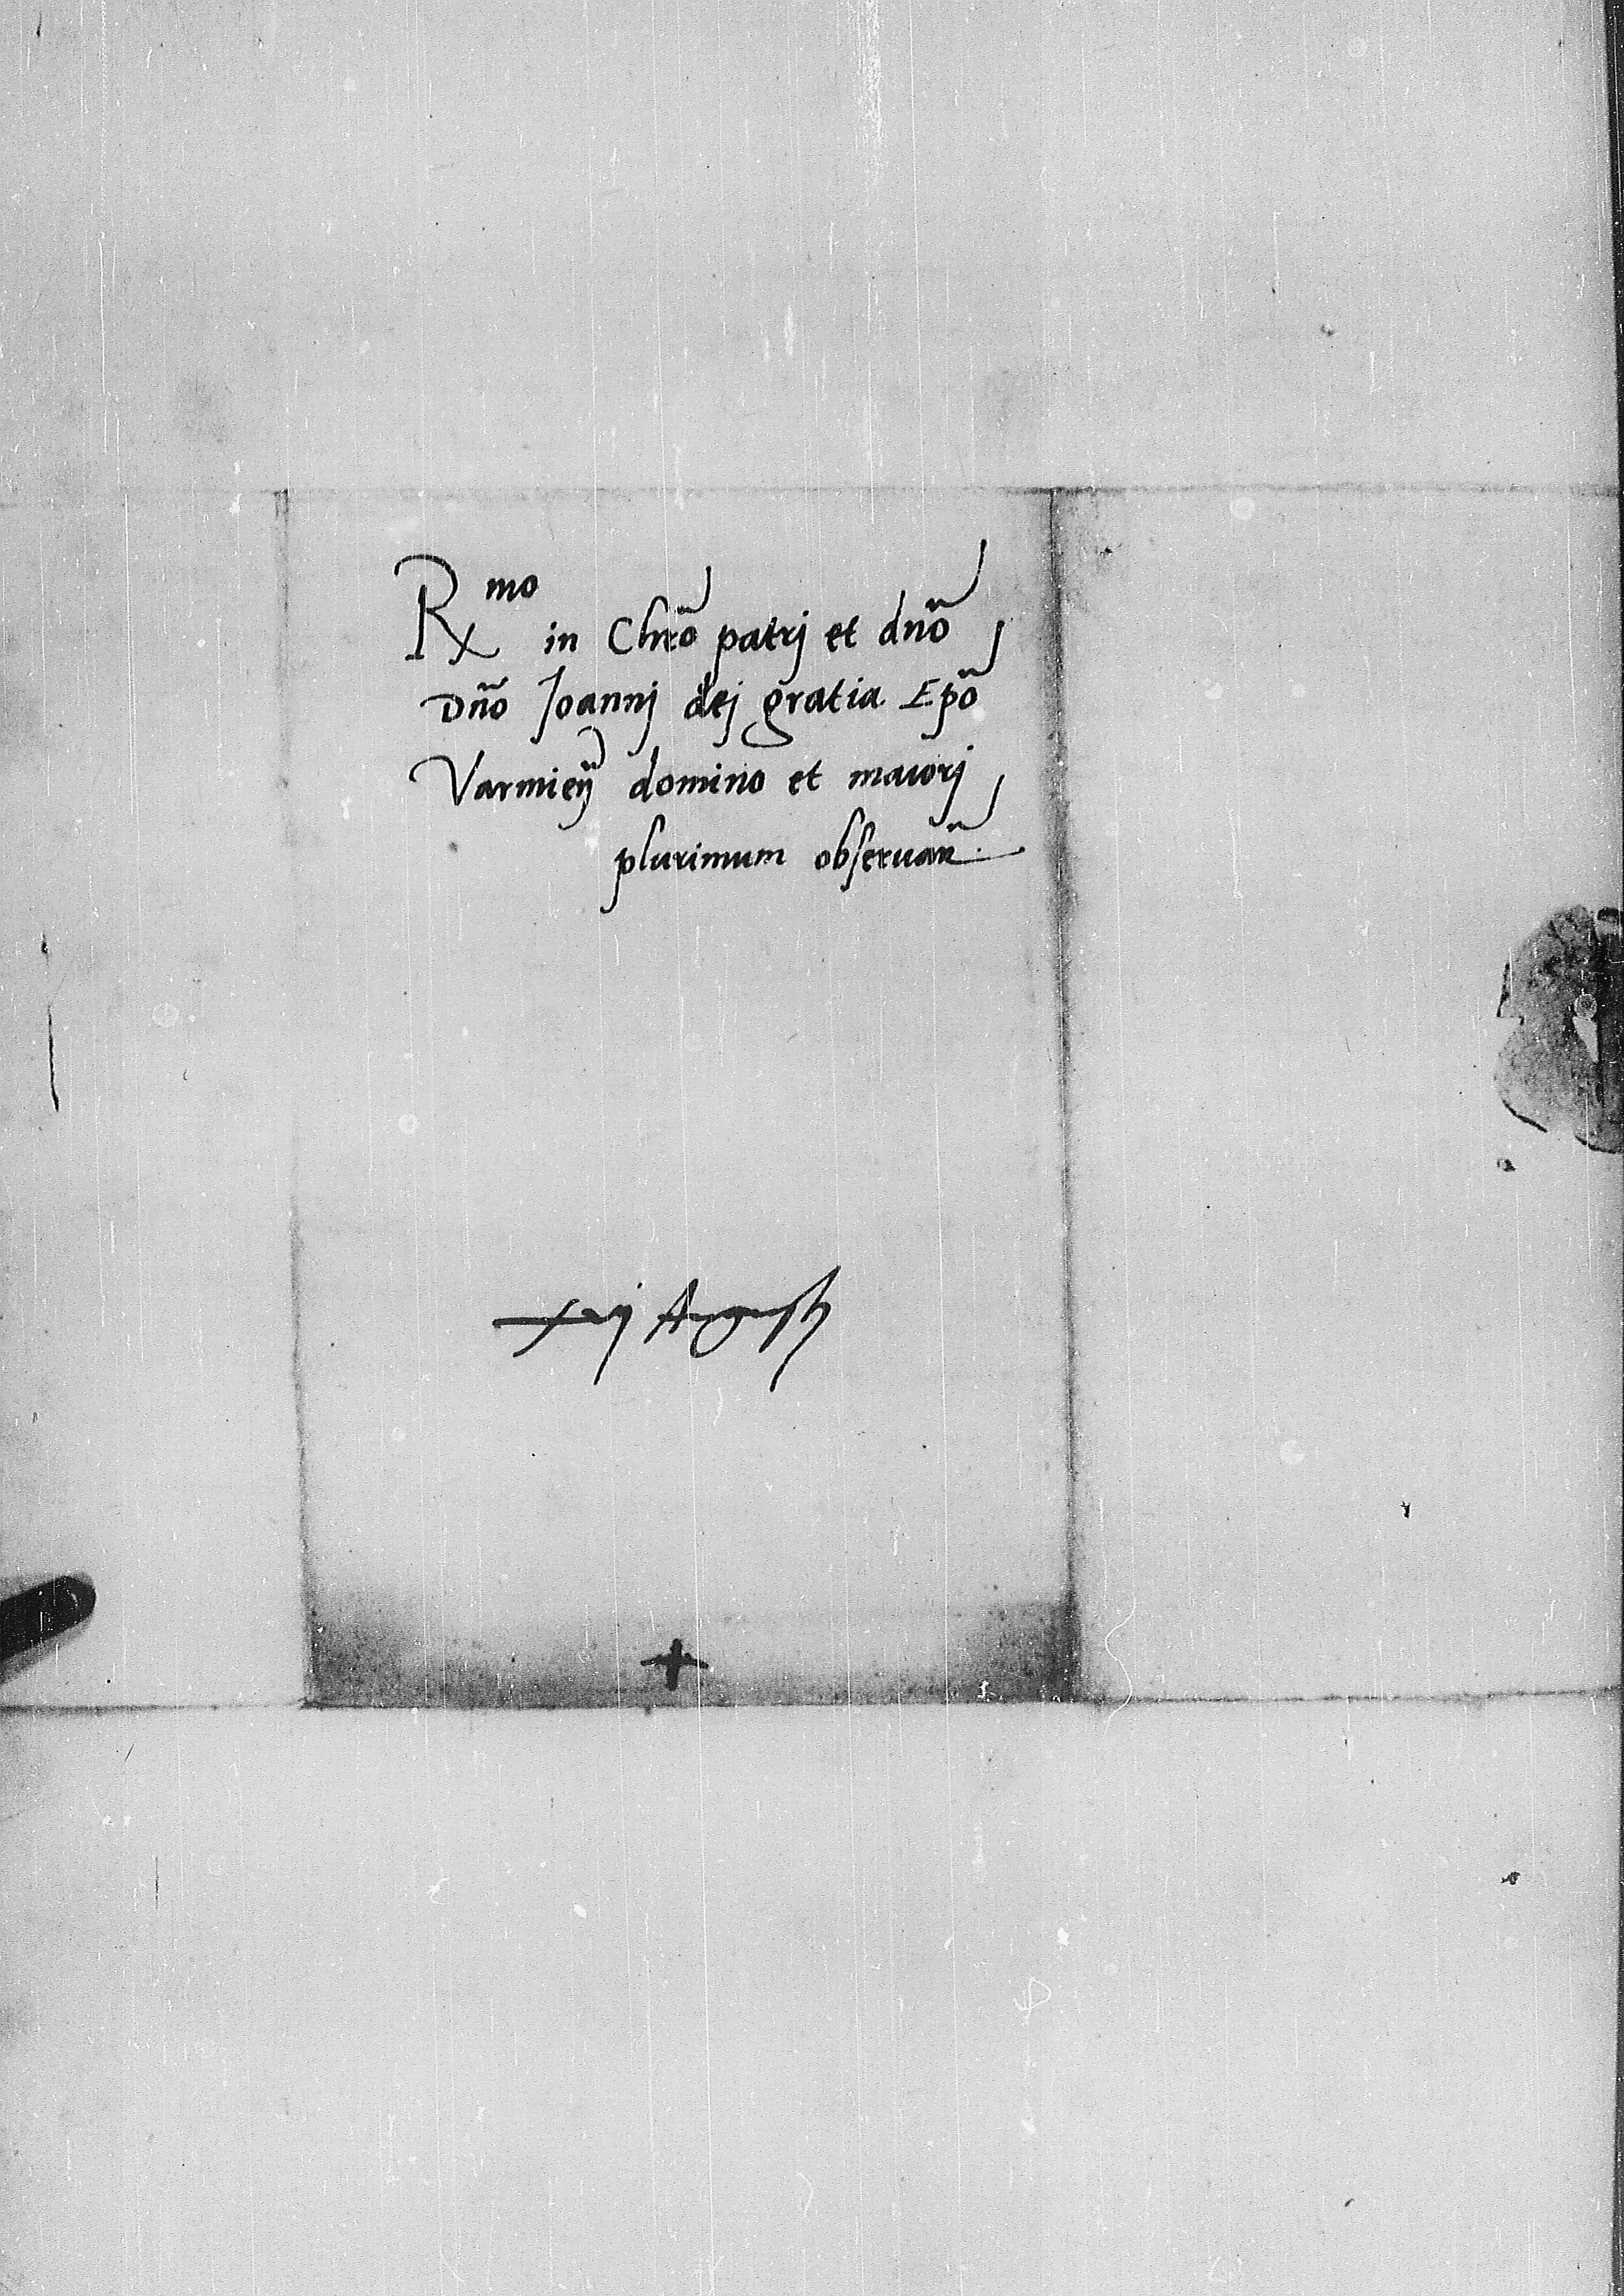 Rx^mo in Chr̃o patrj et dño
Dño Joannj dej gratia Ep̃o
Varmieñ domino et maiorj
plurimum obseruañ.
xvj Augustj